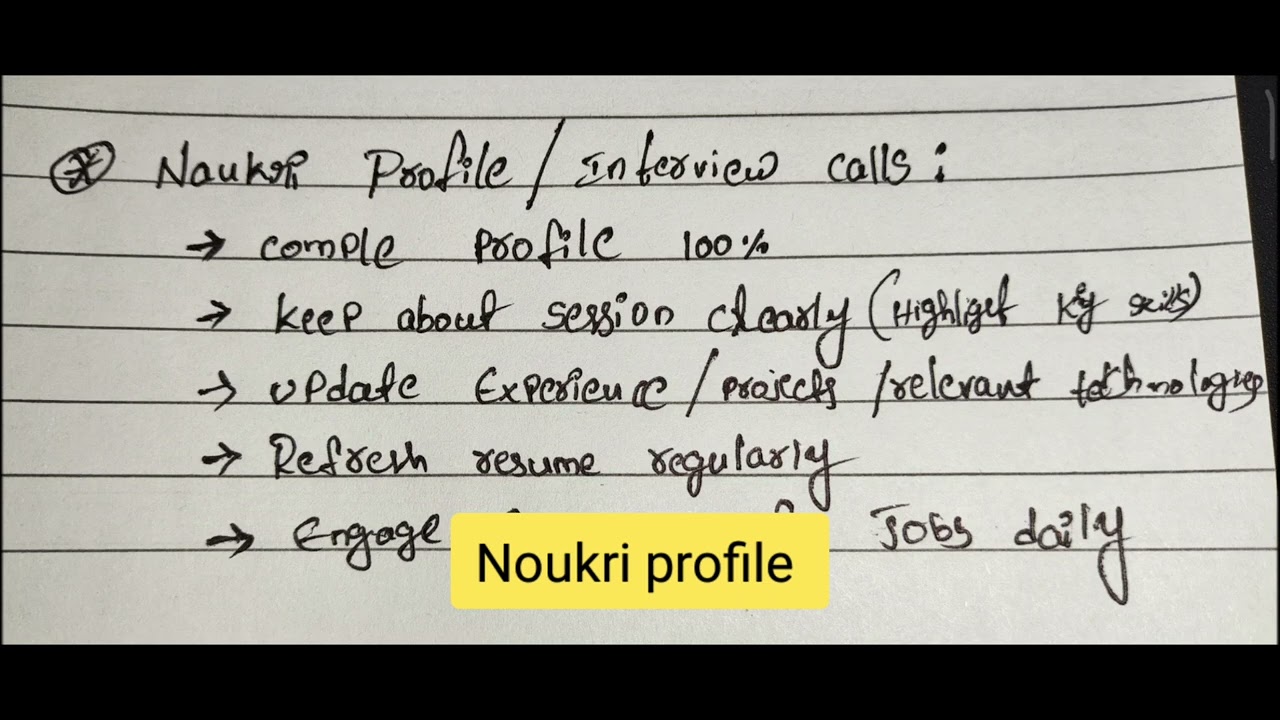 Naukri Profile / Interview calls :
→ comple profile 100%
→ keep about session clearly (Highliget Key skills)
→ update Experience / projects / relevant technologies
→ Refresh resume regularly
→ Engage Jobs daily
Noukri profile